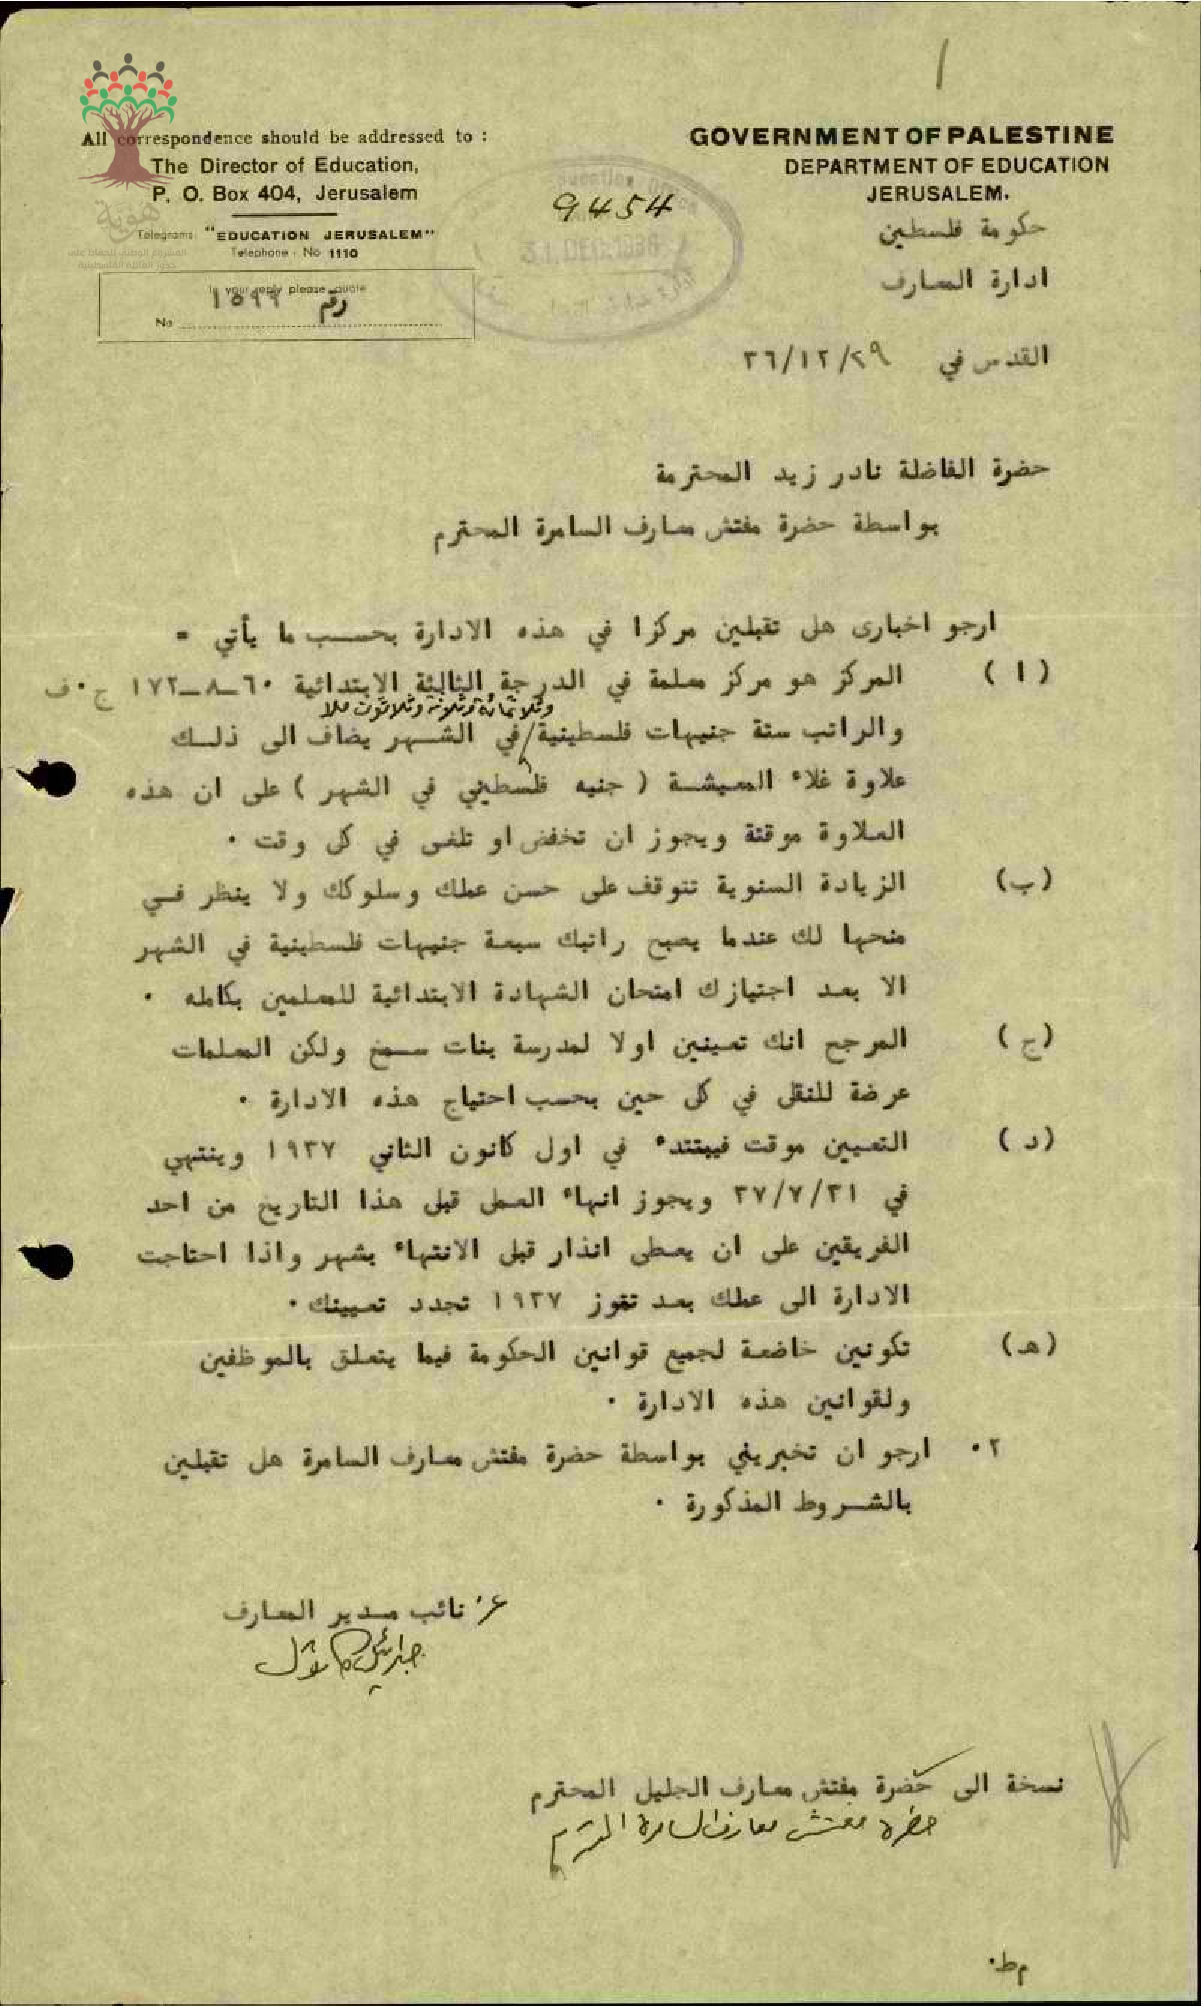 All correspondence should be addressed to :
The Director of Education,
P. O. Box 404, Jerusalem
Telegrams: "EDUCATION JERUSALEM"
Telephone : No 1110
In your reply please quote
رقم ١٥٩٦
No
هوية
GOVERNMENT OF PALESTINE
DEPARTMENT OF EDUCATION
JERUSALEM.
حكومة فلسطين
ادارة المعارف
9454
31 DEC 1936
القدس في ٣٦/١٢/٢٩
حضرة الفاضلة نادر زيد المحترمة
بواسطة حضرة مفتش معارف السامرة المحترم
ارجو اخبارى هل تقبلين مركزا في هذه الادارة بحسب ما يأتي =
(ا) المركز هو مركز معلمة في الدرجة الثالثة الابتدائية ٦٠-٨-١٧٢ ج٠ف
وثلاثمائة وثلاثة وثلاثون ملا
والراتب ستة جنيهات فلسطينية/في الشهر يضاف الى ذلك
علاوة غلاء المعيشة (جنيه فلسطيني في الشهر) على ان هذه
العلاوة موقتة ويجوز ان تخفض او تلغى في كل وقت ٠
(ب) الزيادة السنوية تتوقف على حسن عملك وسلوكك ولا ينظر في
منحها لك عندما يصبح راتبك سبعة جنيهات فلسطينية في الشهر
الا بعد اجتيازك امتحان الشهادة الابتدائية للمعلمين بكامله ٠
(ج) المرجح انك تعينين اولا لمدرسة بنات سمخ ولكن المعلمات
عرضة للنقل في كل حين بحسب احتياج هذه الادارة ٠
(د) التعيين موقت فيبتدء في اول كانون الثاني ١٩٣٧ وينتهي
في ٣٧/٧/٣١ ويجوز انهاء العمل قبل هذا التاريخ من احد
الفريقين على ان يعطى انذار قبل الانتهاء بشهر واذا احتاجت
الادارة الى عملك بعد تموز ١٩٣٧ تجدد تعيينك ٠
(هـ) تكونين خاضعة لجميع قوانين الحكومة فيما يتعلق بالموظفين
ولقوانين هذه الادارة ٠
٢٠ ارجو ان تخبريني بواسطة حضرة مفتش معارف السامرة هل تقبلين
بالشروط المذكورة ٠
عن نائب مدير المعارف
نسخة الى حضرة مفتش معارف الجليل المحترم
حضرة مفتش معارف السامرة المحترم
م ط٠